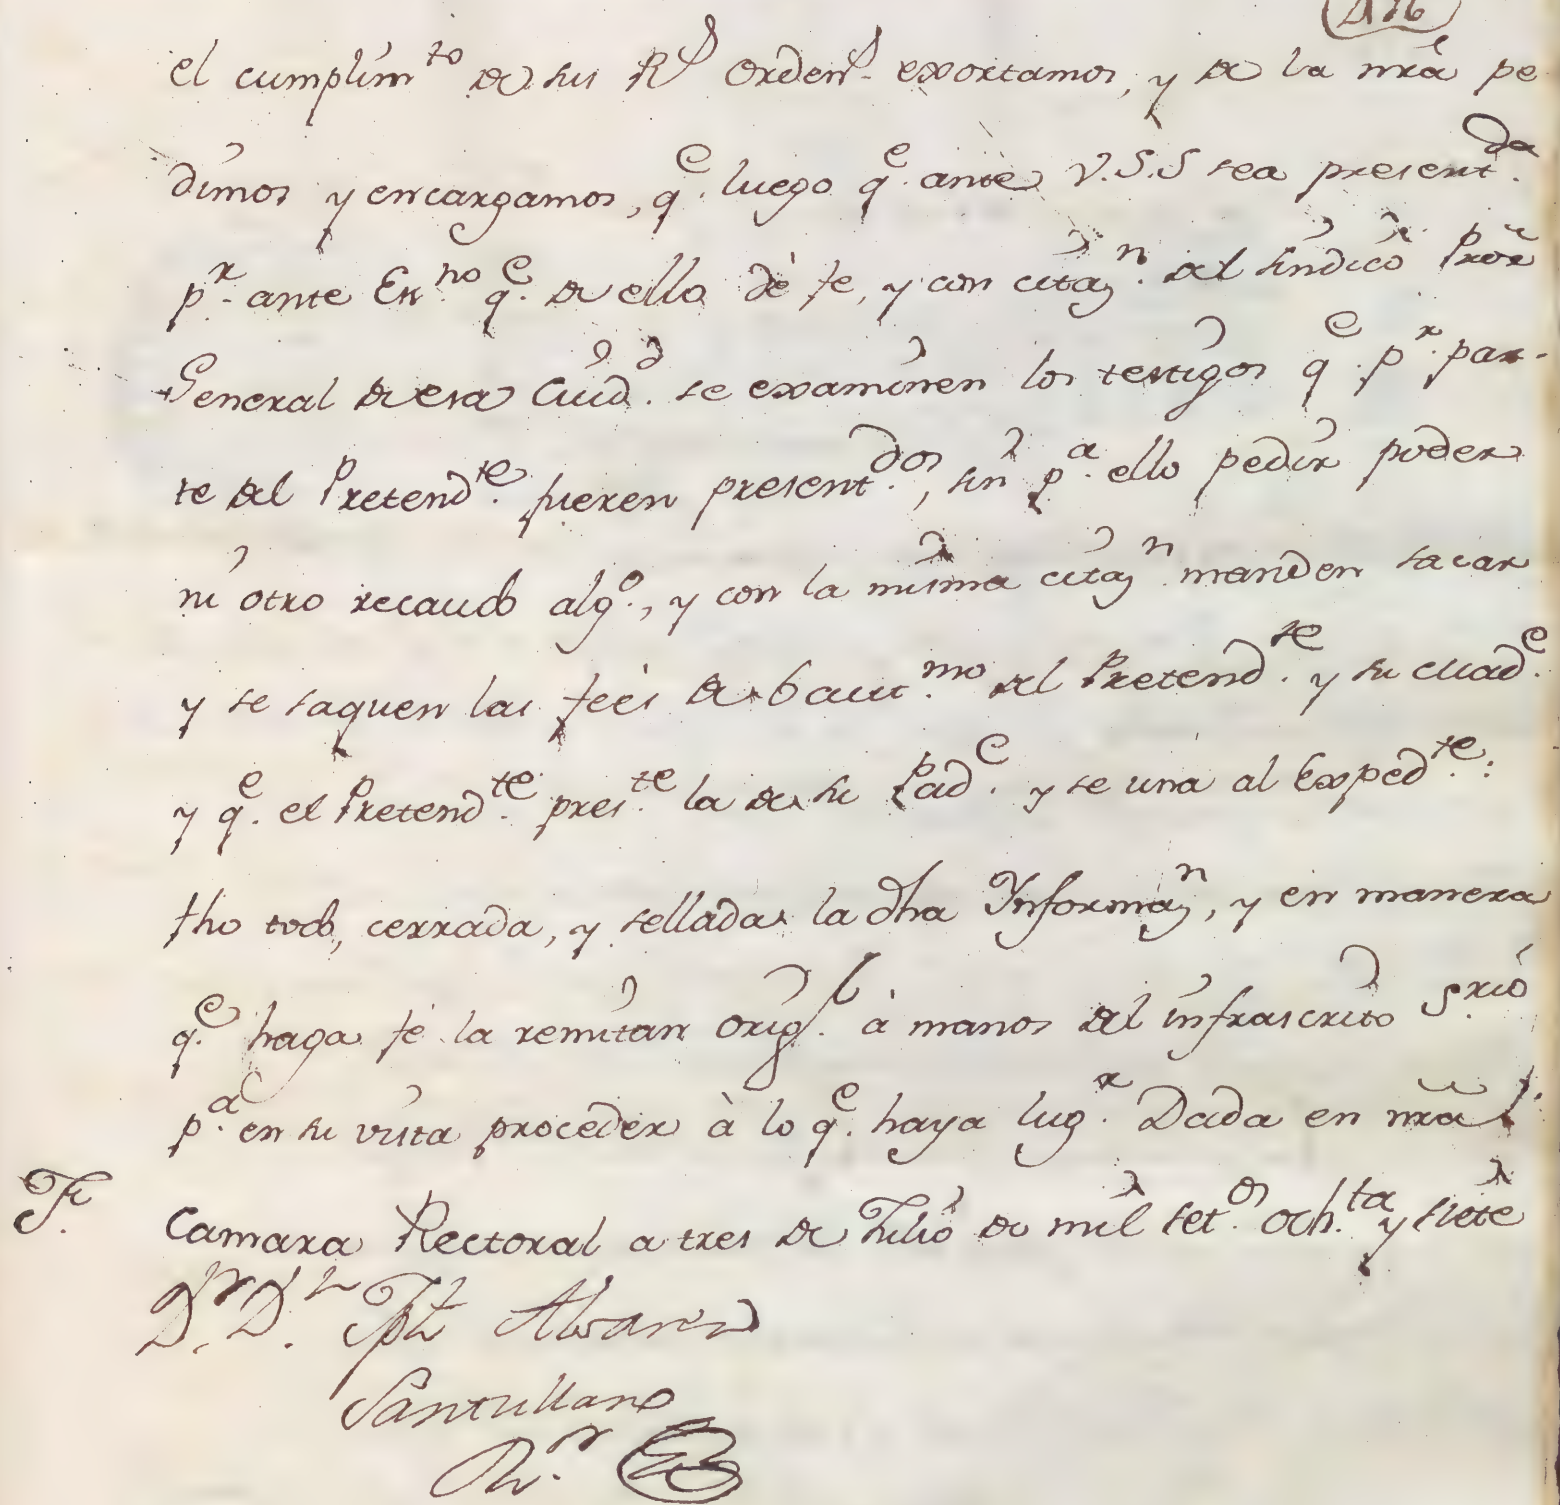 el cumplim.to de sus R.s Orden.s exortamos, y de la nrá pe
dimos y encargamos, q.e luego q.e ante V.S.S sea present.da
p.r ante Esn.no q.e de ello dè fe, y con citaz.n del sindico Pror
General de esa Ciud.d se examinen los testigos q.e p.r par-
te del Pretend.te fueren present.dos, sin p.a ello pedir poder
ni otro recaudo alg.o, y con la misma citaz.n manden sacar
y se saquen las feès de baut.mo del Pretend.te y su Mad.e
y q.e el Pretend.te pres.te la de su Pad.e y se una al Exped.te:
fho todo, cerrada, y sellada la dha Informaz.n, y en manera
q.e haga fé la remitan orig.l à manos del infrascrito S.rio
p.a en su vista proceder à lo q.e haya lug.r Dada en nrã
Camara Rectoral a tres de Julio de mil set.os och.ta y siete
D.r D.n Jph Alvarez
Santullano
R.or